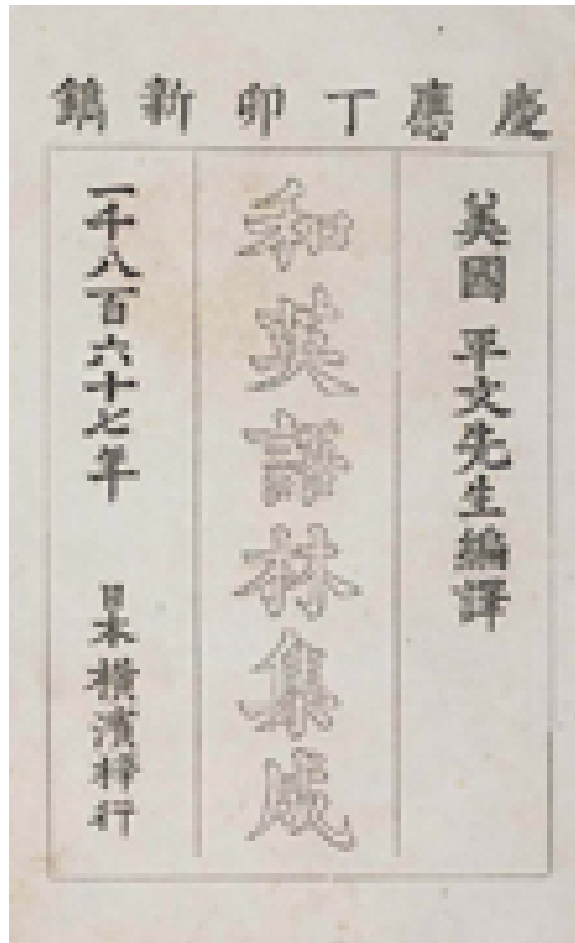 慶應丁卯新鐫
美國 平文先生編譯
和英語林集成
一千八百六十七年 日本横濱梓行